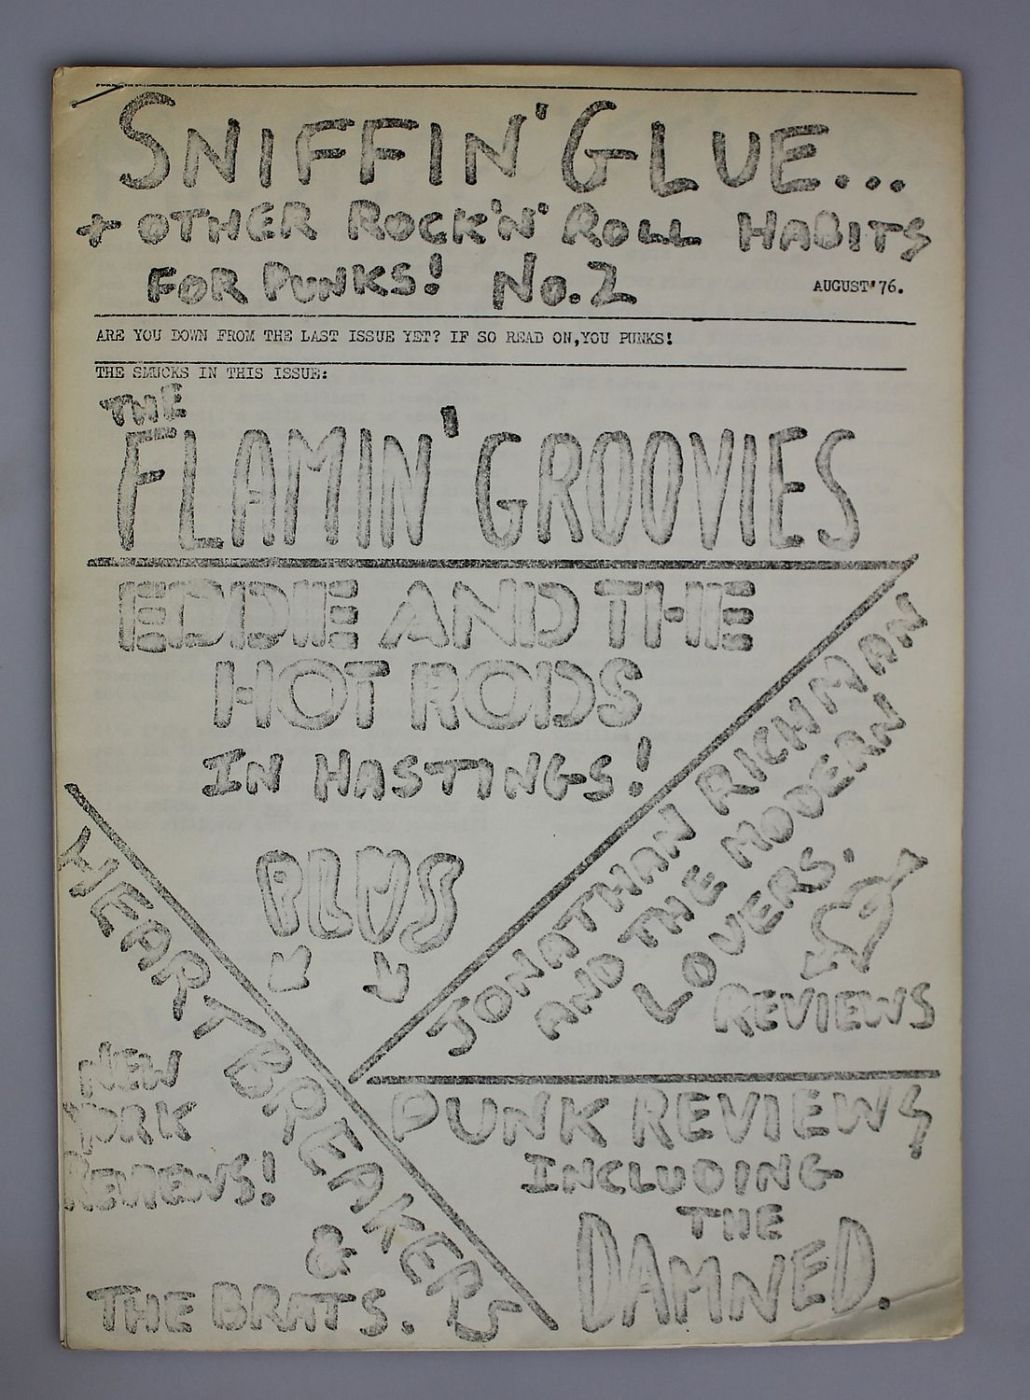 SNIFFIN' GLUE...
+ OTHER ROCK'N' ROLL HABITS
FOR PUNKS! No.2
AUGUST'76.
ARE YOU DOWN FROM THE LAST ISSUE YET? IF SO READ ON,YOU PUNKS!
THE SMUCKS IN THIS ISSUE:
THE
FLAMIN' GROOVIES
EDDIE AND THE
HOT RODS
IN HASTINGS!
JONATHAN RICHMAN
AND THE MODERN
LOVERS.
REVIEWS
PLUS
HEARTBREAKERS
NEW
YORK
REVIEWS!
&
THE BRATS.
PUNK REVIEWS
INCLUDING
THE
DAMNED.